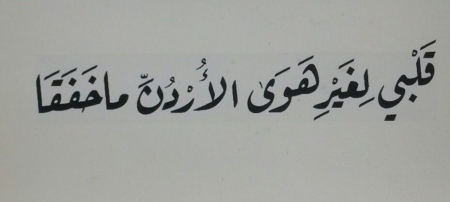 قَلْبي لِغَيْرِ هَوَىٰ الأُرْدُنِّ ما خَفَقَا